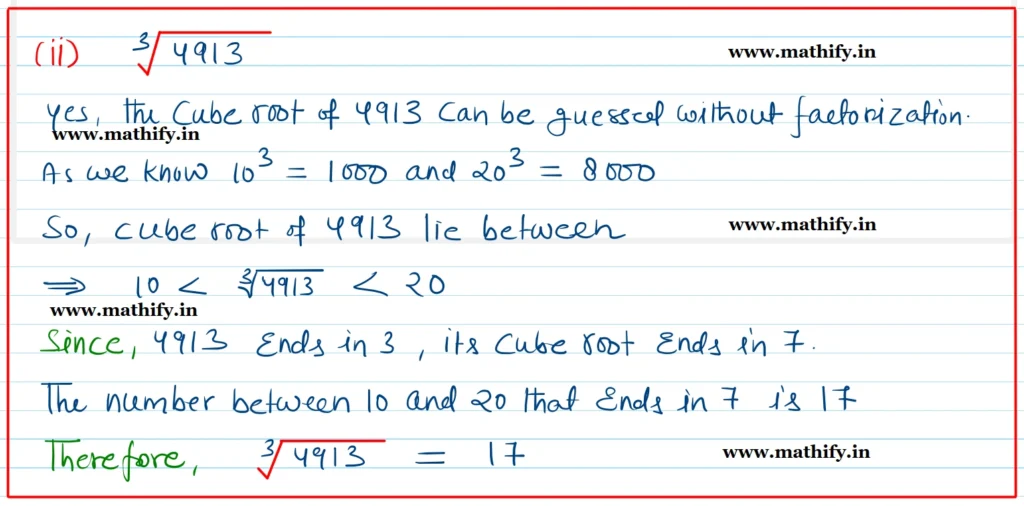 (ii) ∛4913 www.mathify.in
Yes, the Cube root of 4913 Can be guessed without factorization.
www.mathify.in
As we know 10³ = 1000 and 20³ = 8000
So, cube root of 4913 lie between www.mathify.in
⇒ 10 < ∛4913 < 20
www.mathify.in
Since, 4913 Ends in 3, its Cube root Ends in 7.
The number between 10 and 20 that Ends in 7 is 17
Therefore, ∛4913 = 17 www.mathify.in